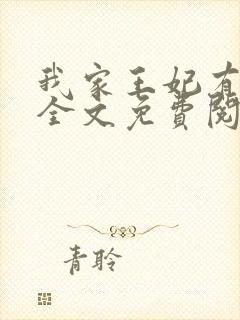 我家王妃有
全文免費閱
青聆